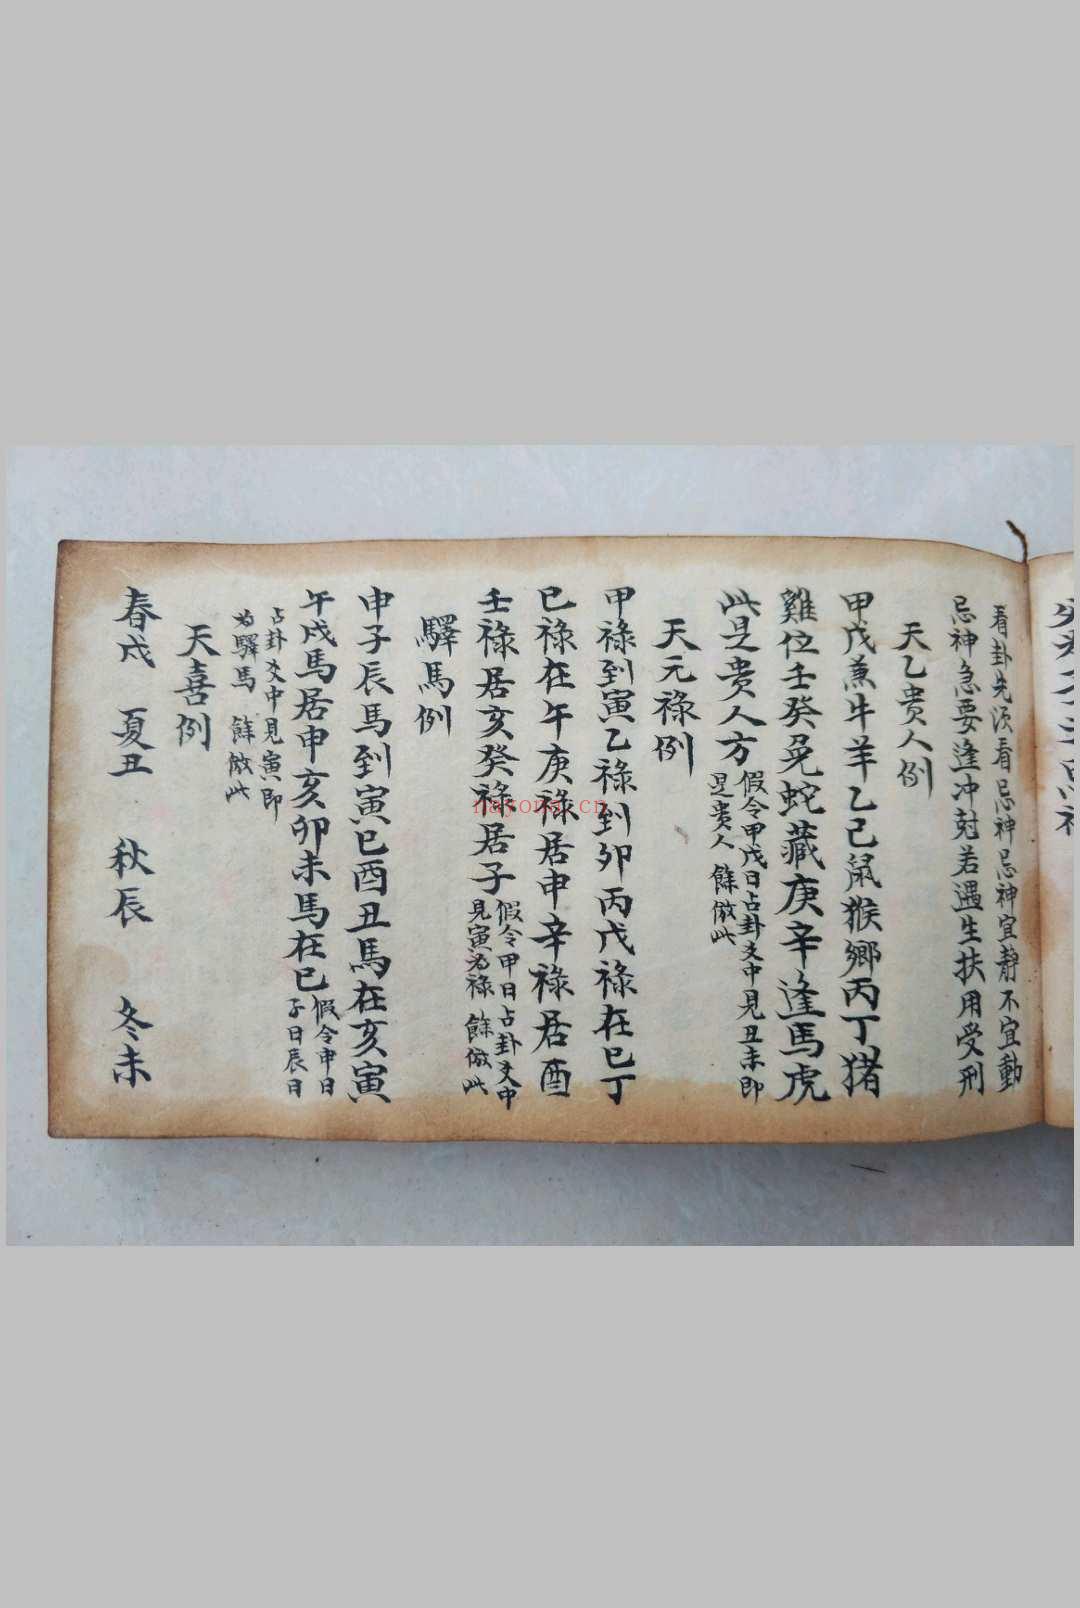 看卦先須看忌神忌神宜静不宜動
忌神急要逢冲尅若遇生扶用受刑
天乙贵人例
甲戊兼牛羊乙己鼠猴鄉丙丁猪
雞位壬癸兔蛇藏庚辛逢馬虎
此是贵人方假令甲戊日占卦爻中見丑未即
是贵人 餘倣此
天元祿例
甲祿到寅乙祿到卯丙戊祿在巳丁
已祿在午庚祿居申辛祿居酉
壬祿居亥癸祿居子假令甲日占卦爻中
見寅为祿 餘倣此
驛馬例
申子辰馬到寅巳酉丑馬在亥寅
午戌馬居申亥卯未馬在巳假令申日
子日辰日
占卦爻中見寅即
为驛馬 餘倣此
天喜例
春戌 夏丑 秋辰 冬未
nayona.cn